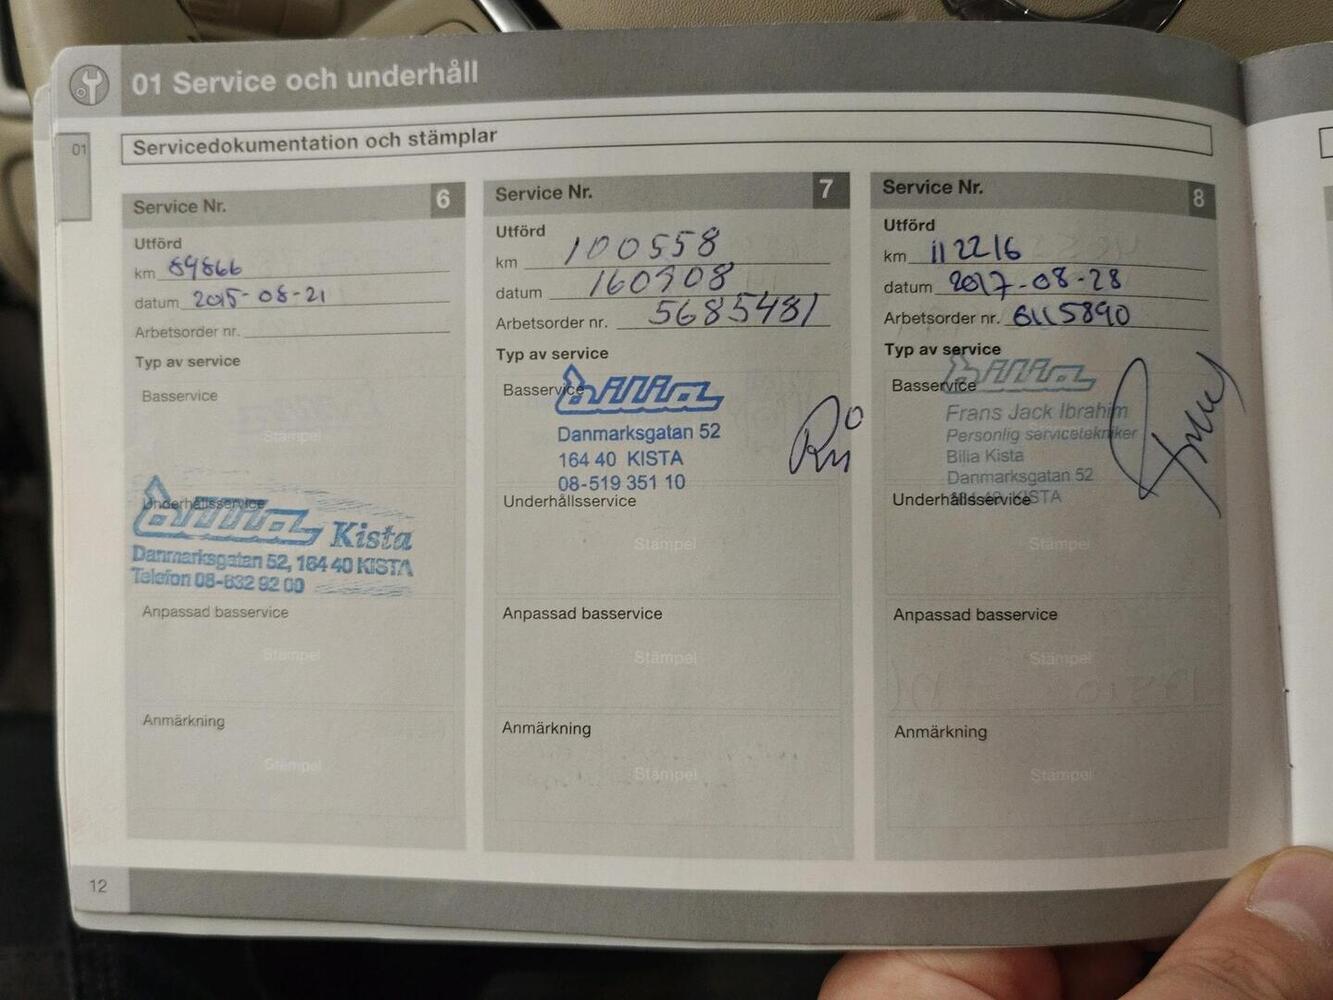 01 Service och underhåll
01
Servicedokumentation och stämplar
Service Nr. 6
Utförd
km 89866
datum 2015-08-21
Arbetsorder nr.
Typ av service
Basservice
Stämpel
Underhållsservice
bilia Kista
Danmarksgatan 52, 164 40 KISTA
Telefon 08-632 92 00
Anpassad basservice
Stämpel
Anmärkning
Stämpel
Service Nr. 7
Utförd
km 100558
datum 160908
Arbetsorder nr. 5685481
Typ av service
Basservice
bilia
Danmarksgatan 52
164 40 KISTA
08-519 351 10
Underhållsservice
Stämpel
Anpassad basservice
Stämpel
Anmärkning
Stämpel
Service Nr. 8
Utförd
km 112216
datum 2017-08-28
Arbetsorder nr. 6115890
Typ av service
Basservice
bilia
Frans Jack Ibrahim
Personlig servicetekniker
Bilia Kista
Danmarksgatan 52
164 40 KISTA
Underhållsservice
Stämpel
Anpassad basservice
Stämpel
Anmärkning
Stämpel
12